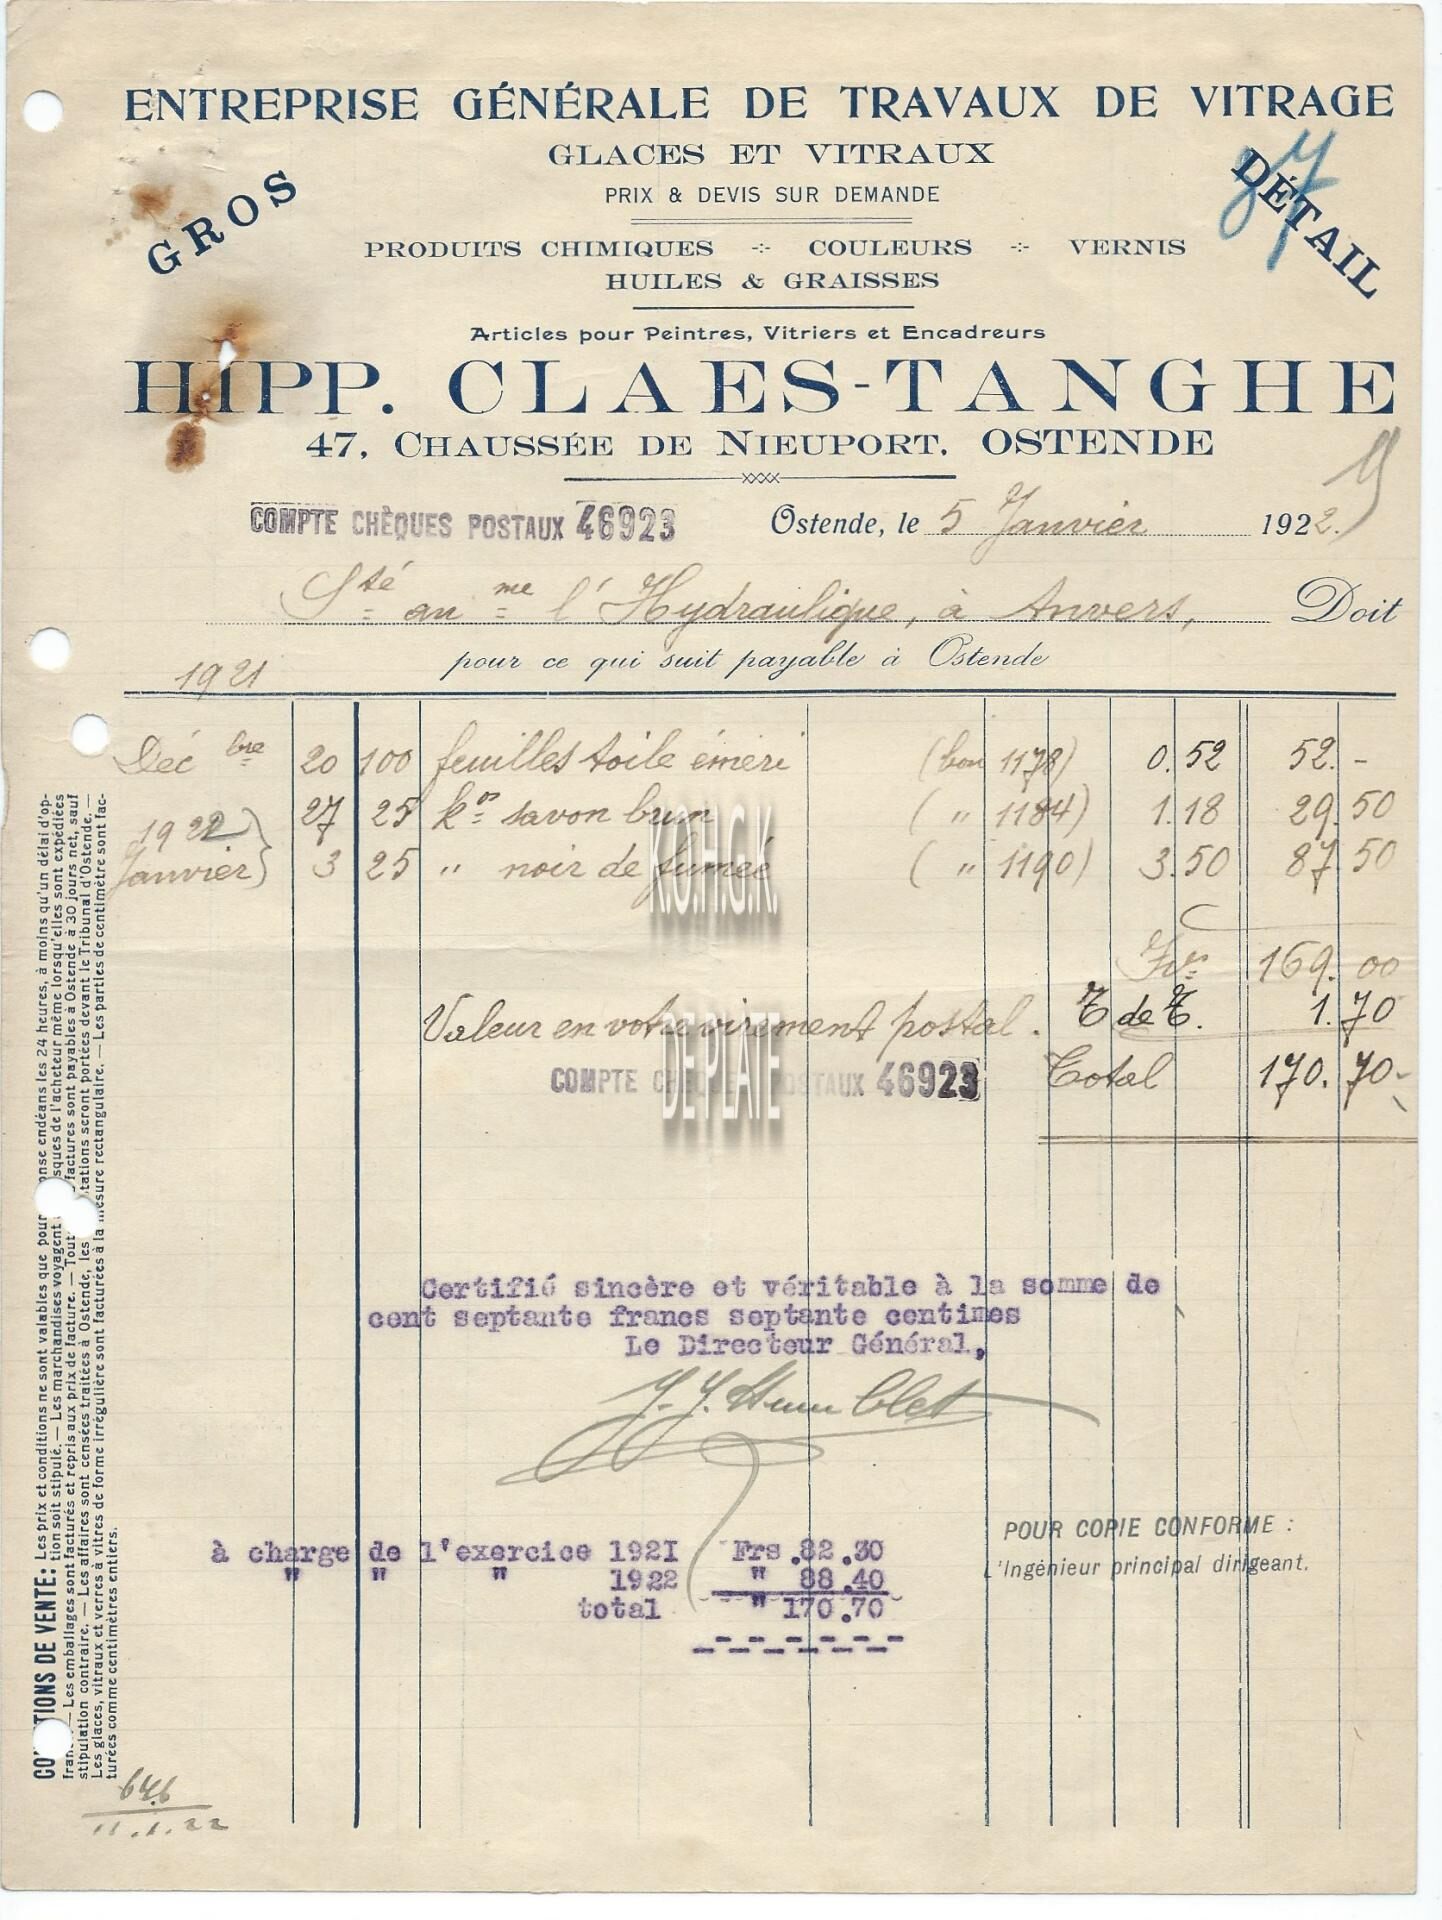 ENTREPRISE GÉNÉRALE DE TRAVAUX DE VITRAGE
GLACES ET VITRAUX
PRIX & DEVIS SUR DEMANDE
GROS
DÉTAIL
PRODUITS CHIMIQUES -:- COULEURS -:- VERNIS
HUILES & GRAISSES
Articles pour Peintres, Vitriers et Encadreurs
HIPP. CLAES-TANGHE
47, CHAUSSÉE DE NIEUPORT. OSTENDE
COMPTE CHÈQUES POSTAUX 46923
Ostende, le 5 Janvier 1922.
Sté an me l'Hydraulique, à Anvers, Doit
pour ce qui suit payable à Ostende
1921
Déc bre 20 100 feuilles toile émeri (bon 1178) 0.52 52.-
27 25 kos savon brun ( " 1184) 1.18 29.50
1922
Janvier 3 25 " noir de fumée ( " 1190) 3.50 87.50
K.O.H.G.K.
Frs 169.00
Valeur en votre virement postal. T de T. 1.70
DE PLATE
COMPTE CHÈQUES POSTAUX 46923 Total 170.70-
Certifié sincère et véritable à la somme de
cent septante francs septante centimes
Le Directeur Général,
POUR COPIE CONFORME :
L'Ingénieur principal dirigeant.
à charge de l'exercice 1921 Frs .82.30
" " " 1922 " 88.40
total " 170.70
CONDITIONS DE VENTE: Les prix et conditions ne sont valables que pour réponse endéans les 24 heures, à moins qu'un délai d'op-
tion soit stipulé. — Les marchandises voyagent sques de l'acheteur même lorsqu'elles sont expédiées
franco. — Les emballages sont facturés et repris aux prix de facture. — Tout factures sont payables à Ostende à 30 jours net, sauf
stipulation contraire. — Les affaires sont censées traitées à Ostende, les tations seront portées devant le Tribunal d'Ostende. —
Les glaces, vitraux et verres à vitres de forme irrégulière sont facturées à la mesure rectangulaire. — Les parties de centimètre sont fac-
turées comme centimètres entiers.
646
11.1.22